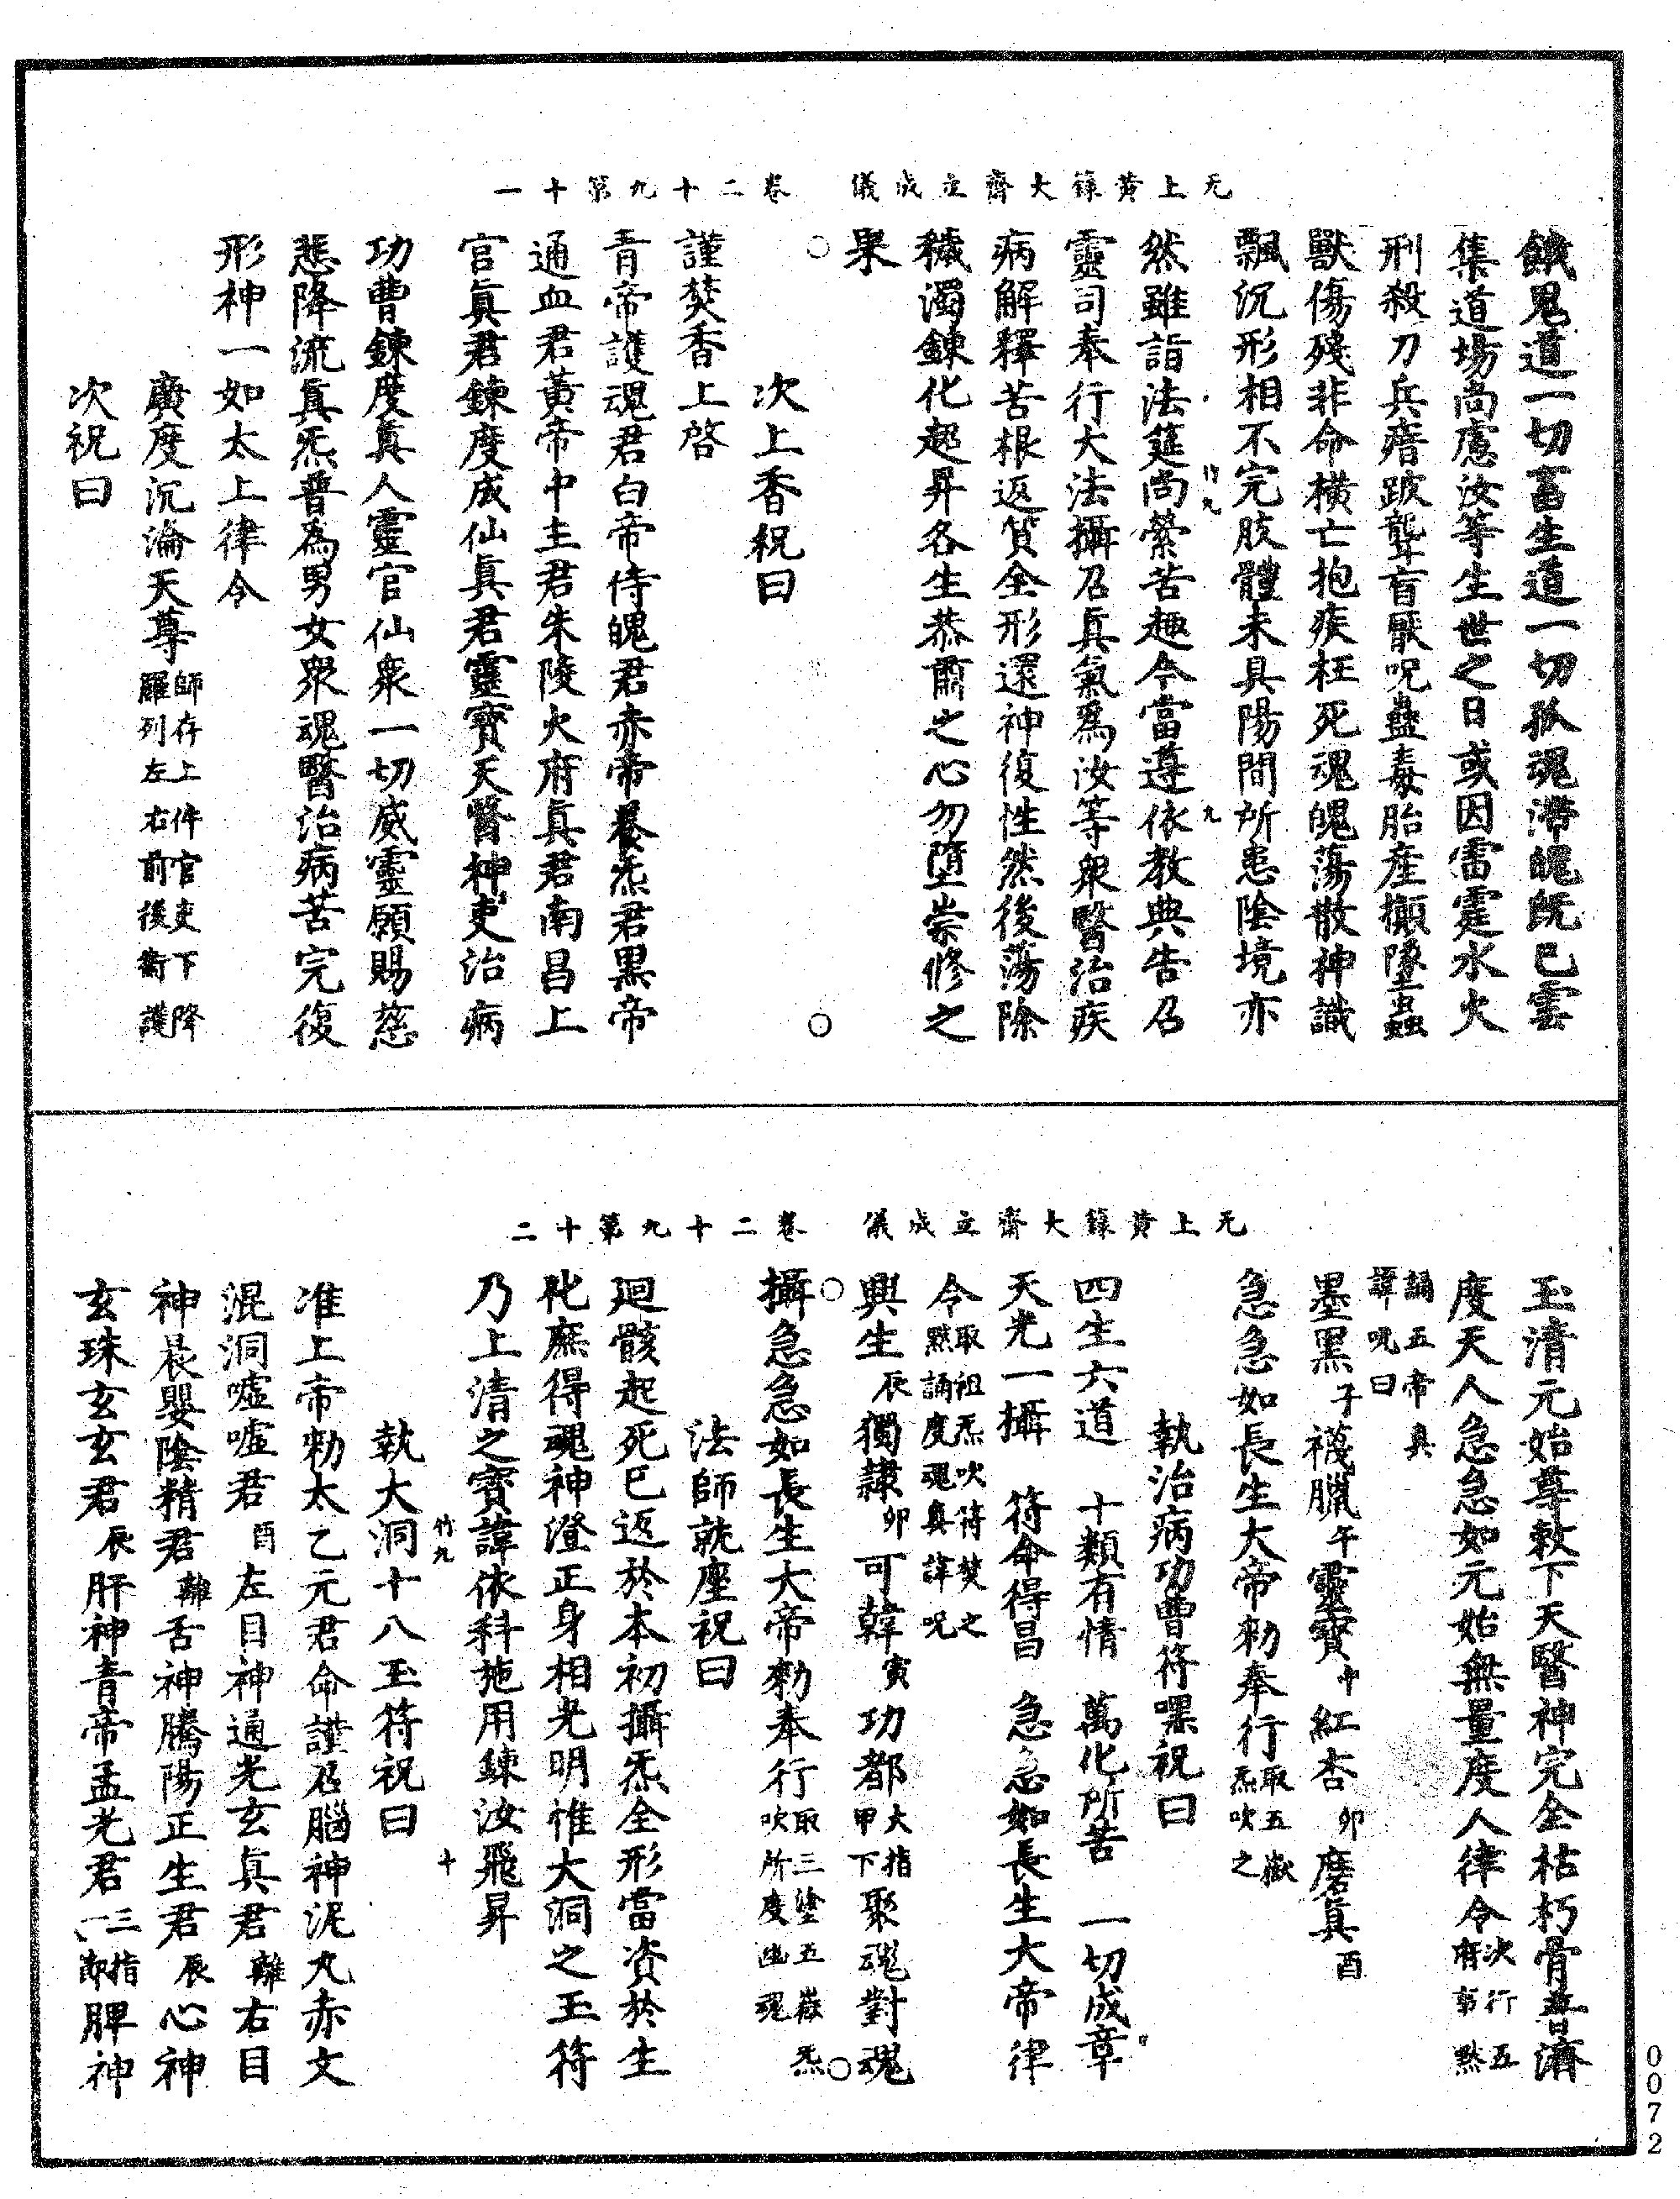 无上黃籙大齋立成儀　卷二十九第十一
餓鬼道一切畜生道一切孤魂滯魄既已雲
集道場尚慮汝等生世之日或因雷霆水火
刑殺刀兵瘖跛聾盲厭呪蠱毒胎產攧墜蟲
獸傷殘非命橫亡抱疾枉死魂魄蕩散神識
飄沉形相不完肢體未具陽間所患陰境亦
然雖詣法筵尚縈苦趣今當遵依教典告召
靈司奉行大法攝召真氣為汝等衆醫治疾
病解釋苦根返質全形還神復性然後蕩除
穢濁鍊化起昇各生恭肅之心勿墮崇修之
果
次上香祝曰
謹焚香上啓
青帝護魂君白帝侍魄君赤帝養炁君黑帝
通血君黃帝中主君朱陵火府真君南昌上
官真君鍊度成仙真君靈寶天醫神吏治病
功曹鍊度真人靈官仙衆一切威靈願賜慈
悲降流真炁普為男女衆魂醫治病苦完復
形神一如太上律令
廣度沉淪天尊師存上件官吏下降羅列左右前後衛護
次祝曰
无上黃籙大齋立成儀　卷二十九第十二
玉清元始尊敕下天醫神完全枯朽骨普濟
度天人急急如元始無量度人律令次行五府事默
誦五帝真諱呪曰
墨黑子襪臘午靈寶中紅杏卯磨真酉
急急如長生大帝勑奉行取五嶽炁吹之
執治病功曹符噀祝曰
四生六道　十類有情　萬化所苦　一切成章
天光一攝　符命得昌　急急如長生大帝律
令取祖炁吹符焚之默誦度魂真諱呪
興生辰獨隸卯可韓寅功都大指甲下聚魂對魂
攝急急如長生大帝勑奉行取三塗五嶽炁吹所度幽魂
法師就座祝曰
廻骸起死已返於本初攝炁全形當資於生
化庶得魂神澄正身相光明惟大洞之玉符
乃上清之寶諱依科施用鍊汝飛昇
執大洞十八玉符祝曰
准上帝勑太乙元君命謹召腦神泥丸赤文
混洞噓噓君酉左目神通光玄真君離右目
神晨嬰陰精君離舌神騰陽正生君辰心神
玄珠玄玄君辰肝神青帝孟光君三指一節脾神
竹九
九
竹九
十
0072